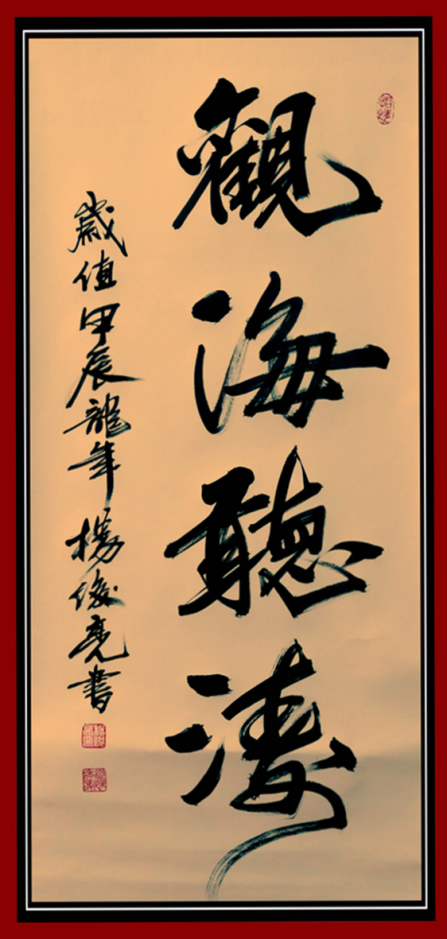 觀海聽濤
歲值甲辰龍年楊俊亮書